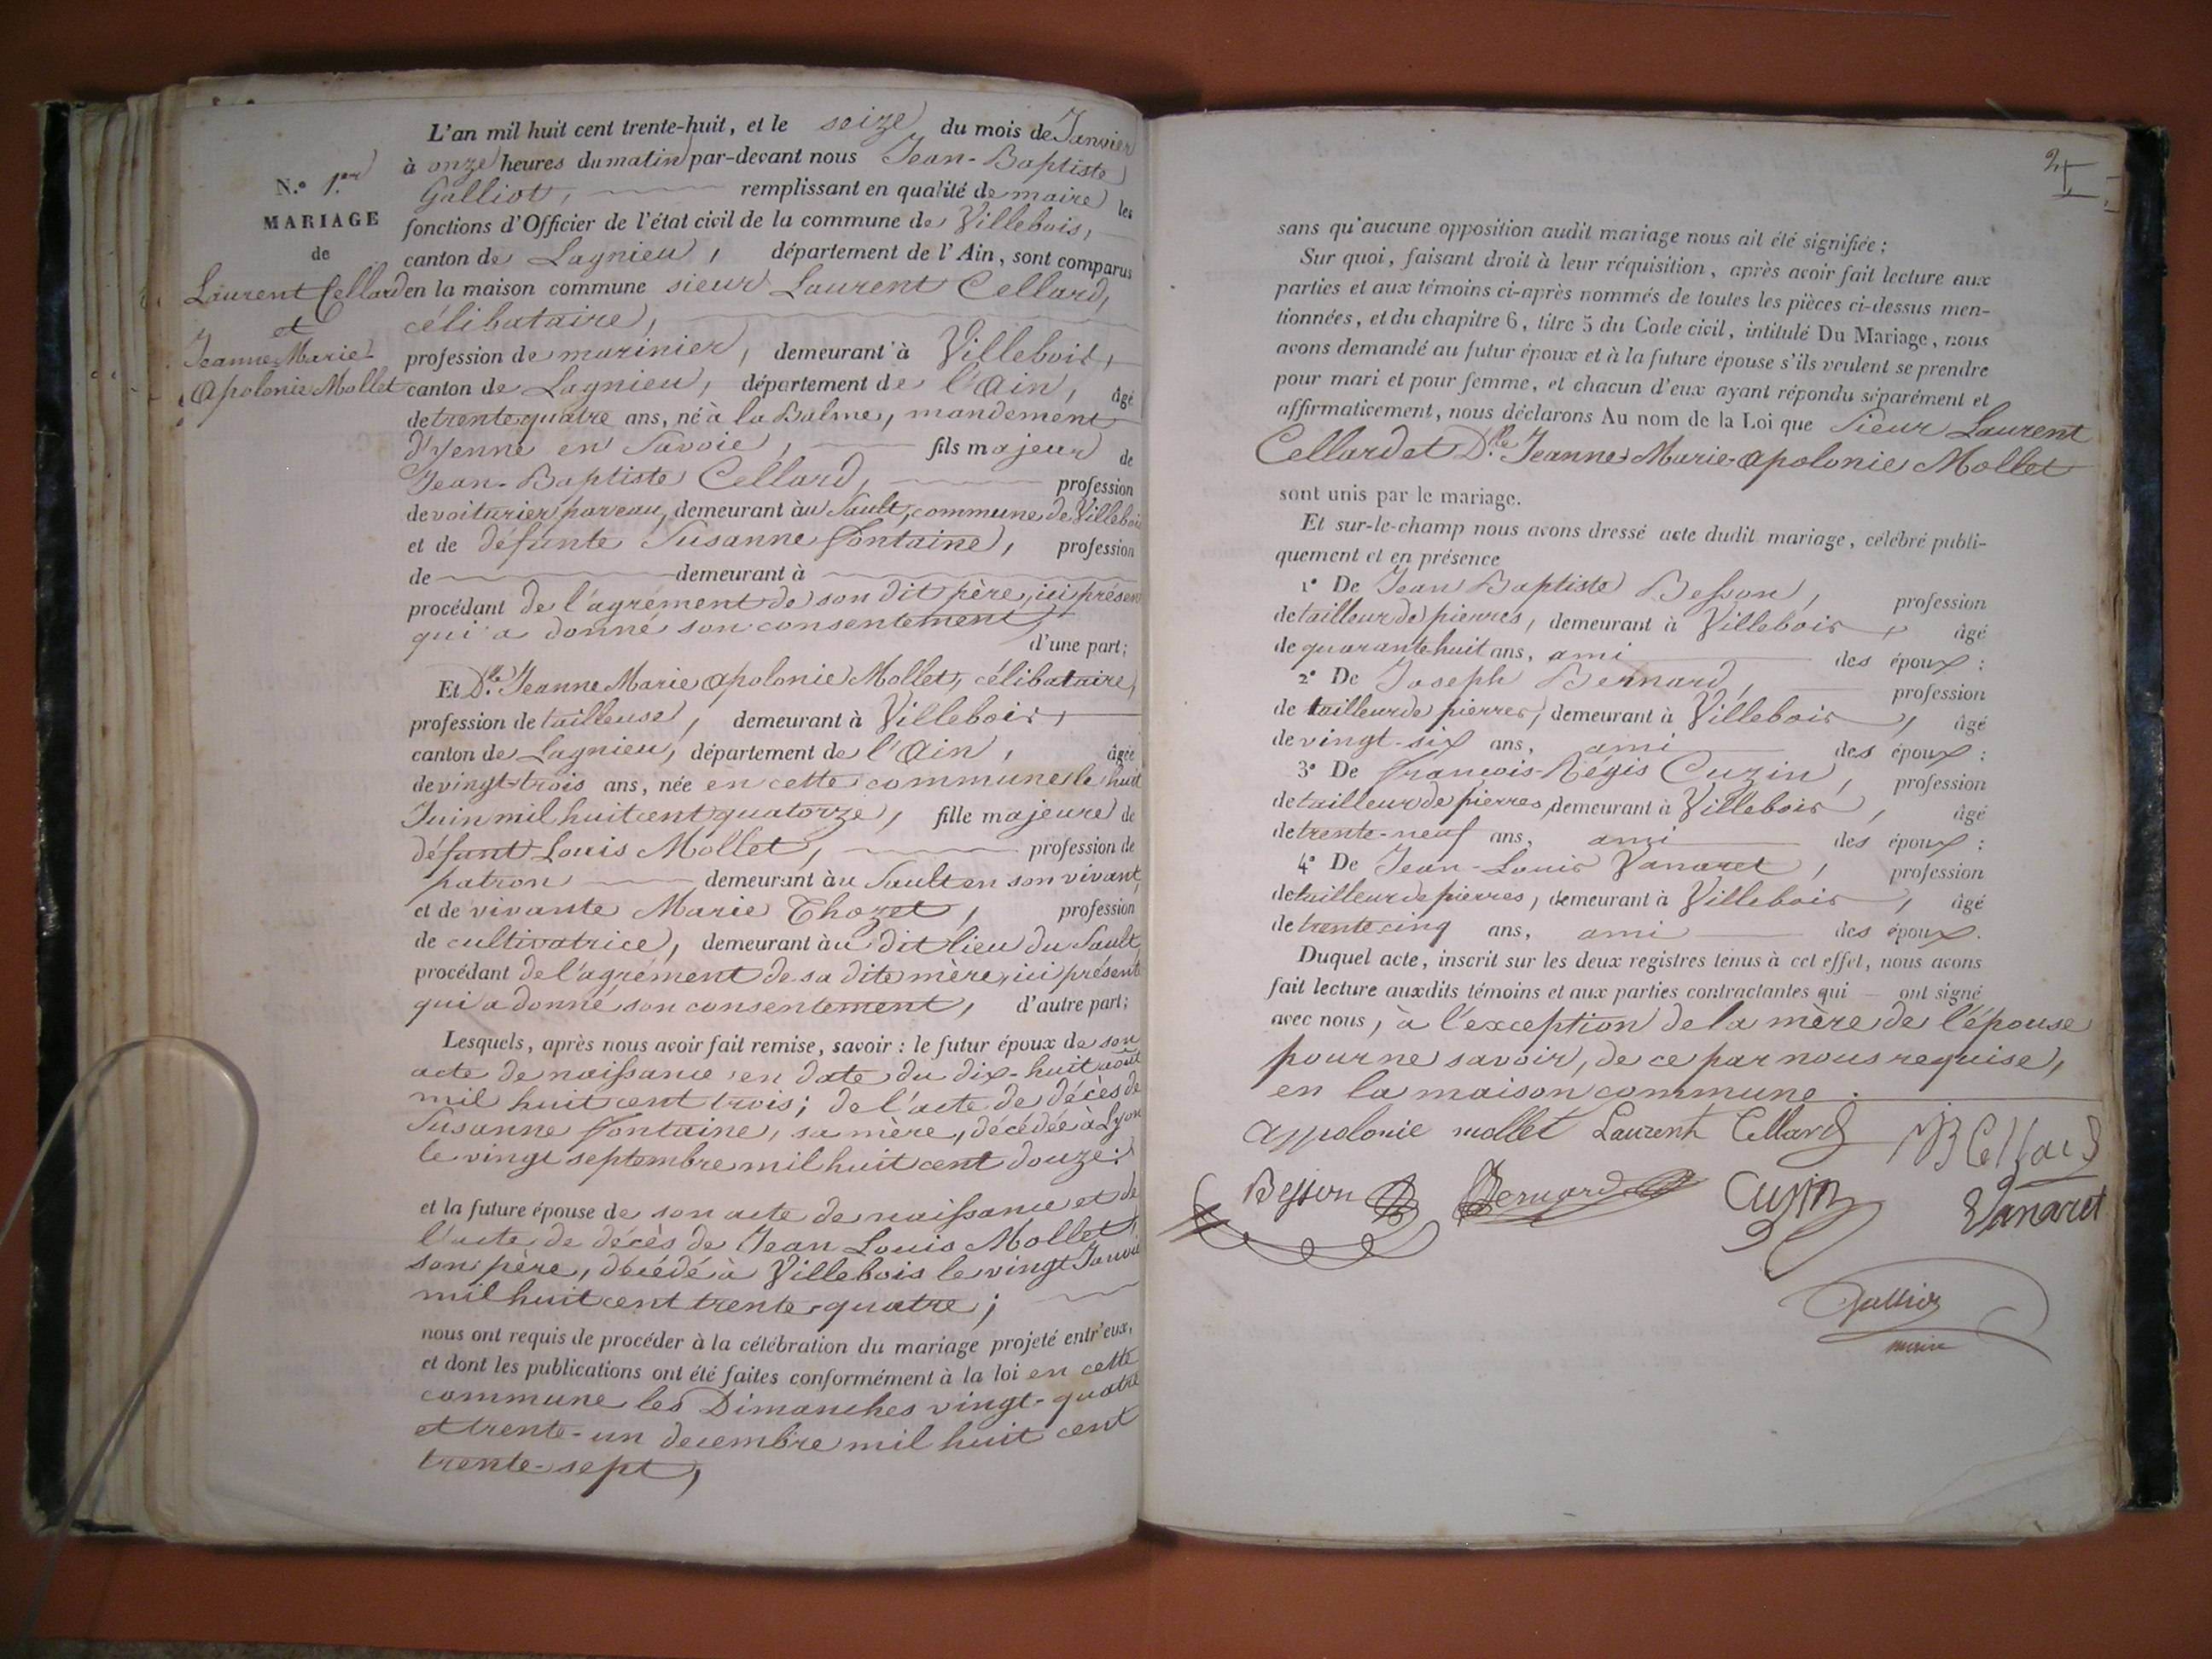 N.º 1.er
MARIAGE
de
Laurent Cellard
et
Jeanne Marie
Apolonie Mollet
L'an mil huit cent trente-huit, et le seize du mois de Janvier
à onze heures du matin par-devant nous Jean-Baptiste
Galliot, remplissant en qualité de maire les
fonctions d'Officier de l'état civil de la commune de Villebois,
canton de Lagnieu, département de l'Ain, sont comparus
en la maison commune sieur Laurent Cellard,
célibataire,
profession de marinier, demeurant à Villebois,
canton de Lagnieu, département de l'Ain, âgé
de trente quatre ans, né à la Balme, mandement
d'yenne en Savoie, fils majeur de
Jean-Baptiste Cellard, profession
de voiturier par eau, demeurant àu Sault, commune de Villebois
et de défunte Susanne Fontaine, profession
de demeurant à
procédant de l'agrément de son dit père, ici présent
qui a donné son consentement,
d'une part;
Et D.lle Jeanne Marie Apolonie Mollet, célibataire,
profession de tailleuse, demeurant à Villebois,
canton de Lagnieu, département de l'Ain, âgée
de vingt-trois ans, née en cette commune le huit
Juin mil huit cent quatorze, fille majeure de
défunt Louis Mollet, profession de
patron demeurant àu Sault en son vivant,
et de vivante Marie Thozet, profession
de cultivatrice, demeurant àu dit lieu du Sault,
procédant de l'agrément de sa dite mère, ici présent
qui a donné son consentement, d'autre part;
Lesquels, après nous avoir fait remise, savoir : le futur époux de son
acte de naissance en date du dix-huit août
mil huit cent trois; de l'acte de décès de
Susanne Fontaine, sa mère, décédée à Lyon
le vingt septembre mil huit cent douze;
et la future épouse de son acte de naissance et de
l'acte de décès de Jean Louis Mollet,
son père, décédé à Villebois le vingt Janvier
mil huit cent trente-quatre;
nous ont requis de procéder à la célébration du mariage projeté entr'eux,
et dont les publications ont été faites conformément à la loi en cette
commune les Dimanches vingt-quatre
et trente-un decembre mil huit cent
trente-sept,
sans qu'aucune opposition audit mariage nous ait été signifiée;
Sur quoi, faisant droit à leur réquisition, après avoir fait lecture aux
parties et aux témoins ci-après nommés de toutes les pièces ci-dessus men-
tionnées, et du chapitre 6, titre 5 du Code civil, intitulé Du Mariage, nous
avons demandé au futur époux et à la future épouse s'ils veulent se prendre
pour mari et pour femme, et chacun d'eux ayant répondu séparément et
affirmativement, nous déclarons Au nom de la Loi que Sieur Laurent
Cellard et D.lle Jeanne Marie Apolonie Mollet
sont unis par le mariage.
Et sur-le-champ nous avons dressé acte dudit mariage, célébré publi-
quement et en présence
1º De Jean Baptiste Besson, profession
de tailleur de pierres, demeurant à Villebois, âgé
de quarante huit ans, ami des époux;
2º De Joseph Bernard, profession
de tailleur de pierres, demeurant à Villebois, âgé
de vingt-six ans, ami des époux;
3º De François-Régis Cuzin, profession
de tailleur de pierres, demeurant à Villebois, âgé
de trente-neuf ans, ami des époux;
4º De Jean-Louis Vanaret, profession
de tailleur de pierres, demeurant à Villebois, âgé
de trente cinq ans, ami des époux.
Duquel acte, inscrit sur les deux registres tenus à cet effet, nous avons
fait lecture auxdits témoins et aux parties contractantes qui ont signé
avec nous, à l'exception de la mère de l'épouse
pour ne savoir, de ce par nous requise,
en la maison commune.
appolonie mollet Laurent Cellard JB Cellard
Besson Bernard Cuzin Vanaret
Galliot
maire